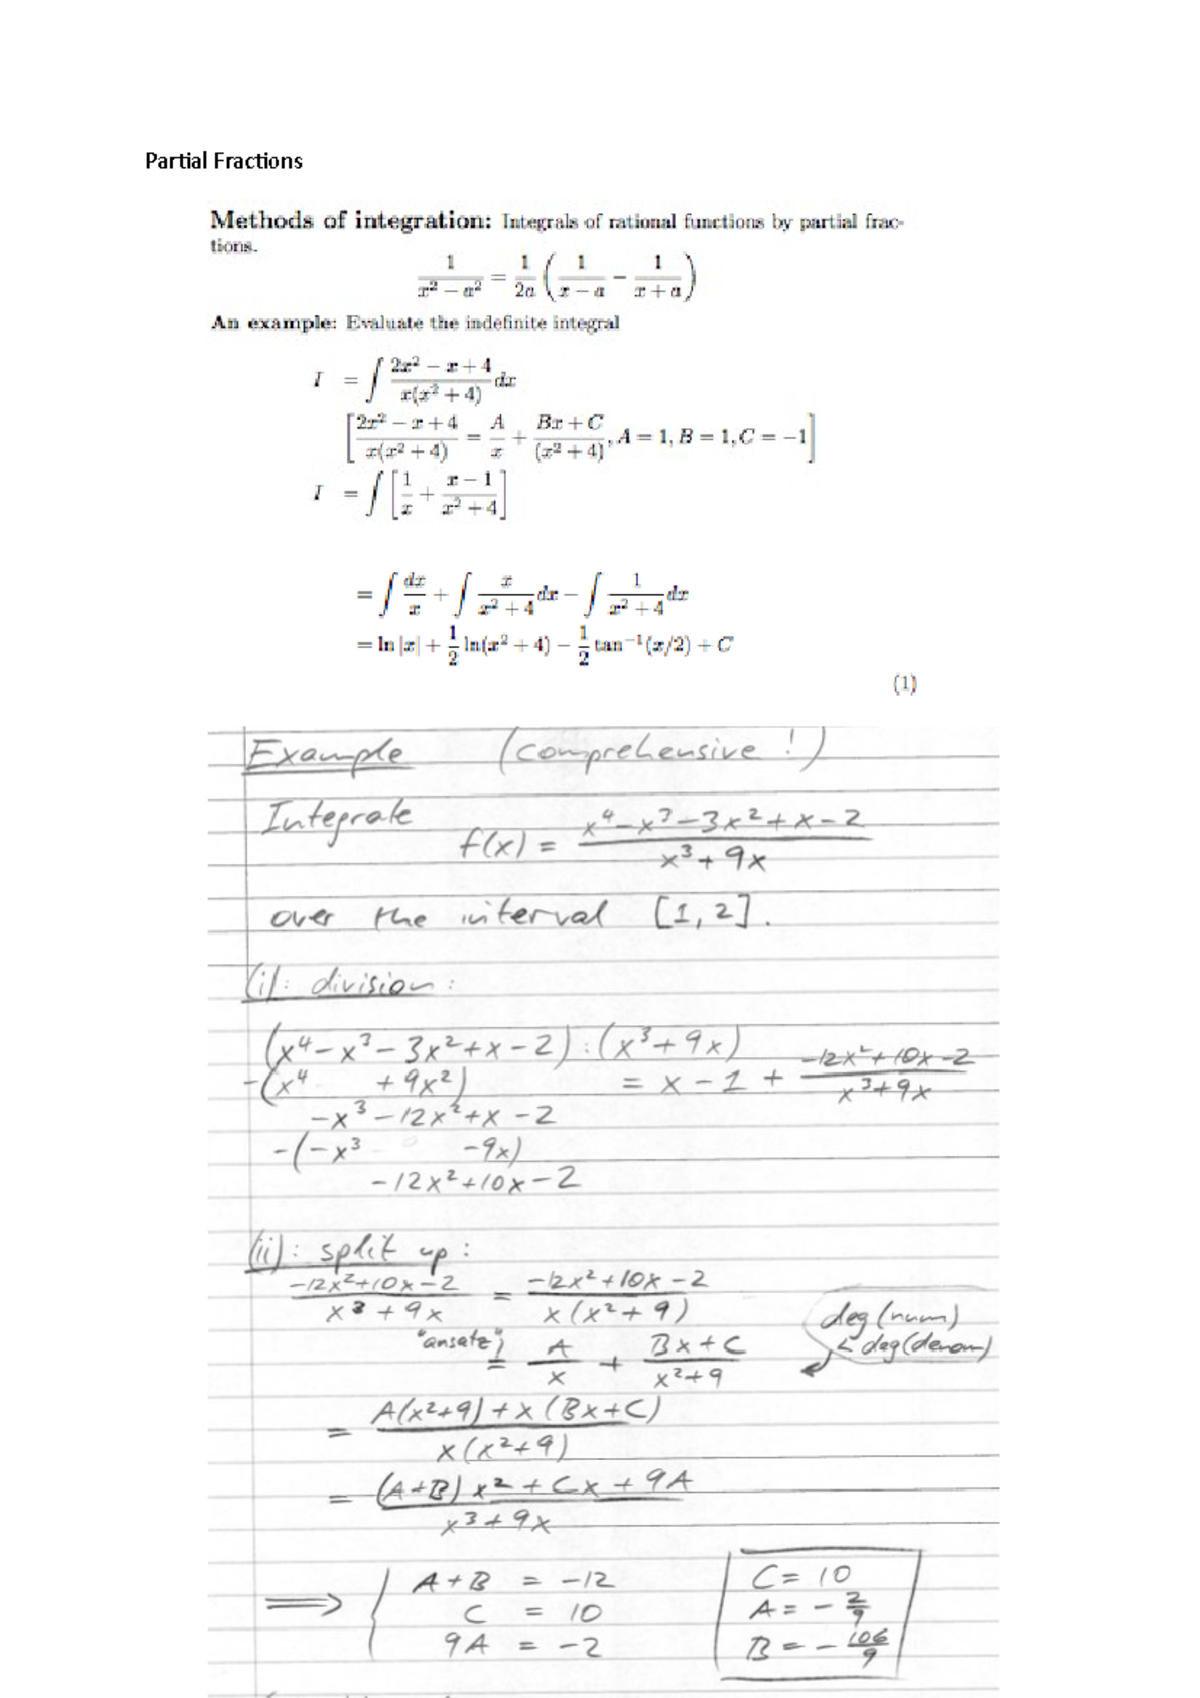 Partial Fractions
Methods of integration: Integrals of rational functions by partial frac-
tions.
1/(x² − a²) = 1/2a (1/(x − a) − 1/(x + a))
An example: Evaluate the indefinite integral
I = ∫ (2x² − x + 4)/(x(x² + 4)) dx
[(2x² − x + 4)/(x(x² + 4)) = A/x + (Bx + C)/(x² + 4), A = 1, B = 1, C = −1]
I = ∫ [1/x + (x − 1)/(x² + 4)]
= ∫ dx/x + ∫ x/(x² + 4) dx − ∫ 1/(x² + 4) dx
= ln |x| + 1/2 ln(x² + 4) − 1/2 tan⁻¹(x/2) + C
(1)
Example (comprehensive!)
Integrate f(x) = (x⁴ − x³ − 3x² + x − 2)/(x³ + 9x)
over the interval [1, 2].
(i): division:
(x⁴ − x³ − 3x² + x − 2) : (x³ + 9x)
−(x⁴ + 9x²) = x − 1 + (−12x² + 10x − 2)/(x³ + 9x)
−x³ − 12x² + x − 2
−(−x³ − 9x)
−12x² + 10x − 2
(ii): split up:
(−12x² + 10x − 2)/(x³ + 9x) = (−12x² + 10x − 2)/(x(x² + 9))
"ansatz" = A/x + (Bx + C)/(x² + 9)
deg(num)
< deg(denom)
= (A(x² + 9) + x(Bx + C))/(x(x² + 9))
= ((A + B)x² + Cx + 9A)/(x³ + 9x)
⟹ { A + B = −12
C = 10
9A = −2
C = 10
A = − 2/9
B = − 106/9